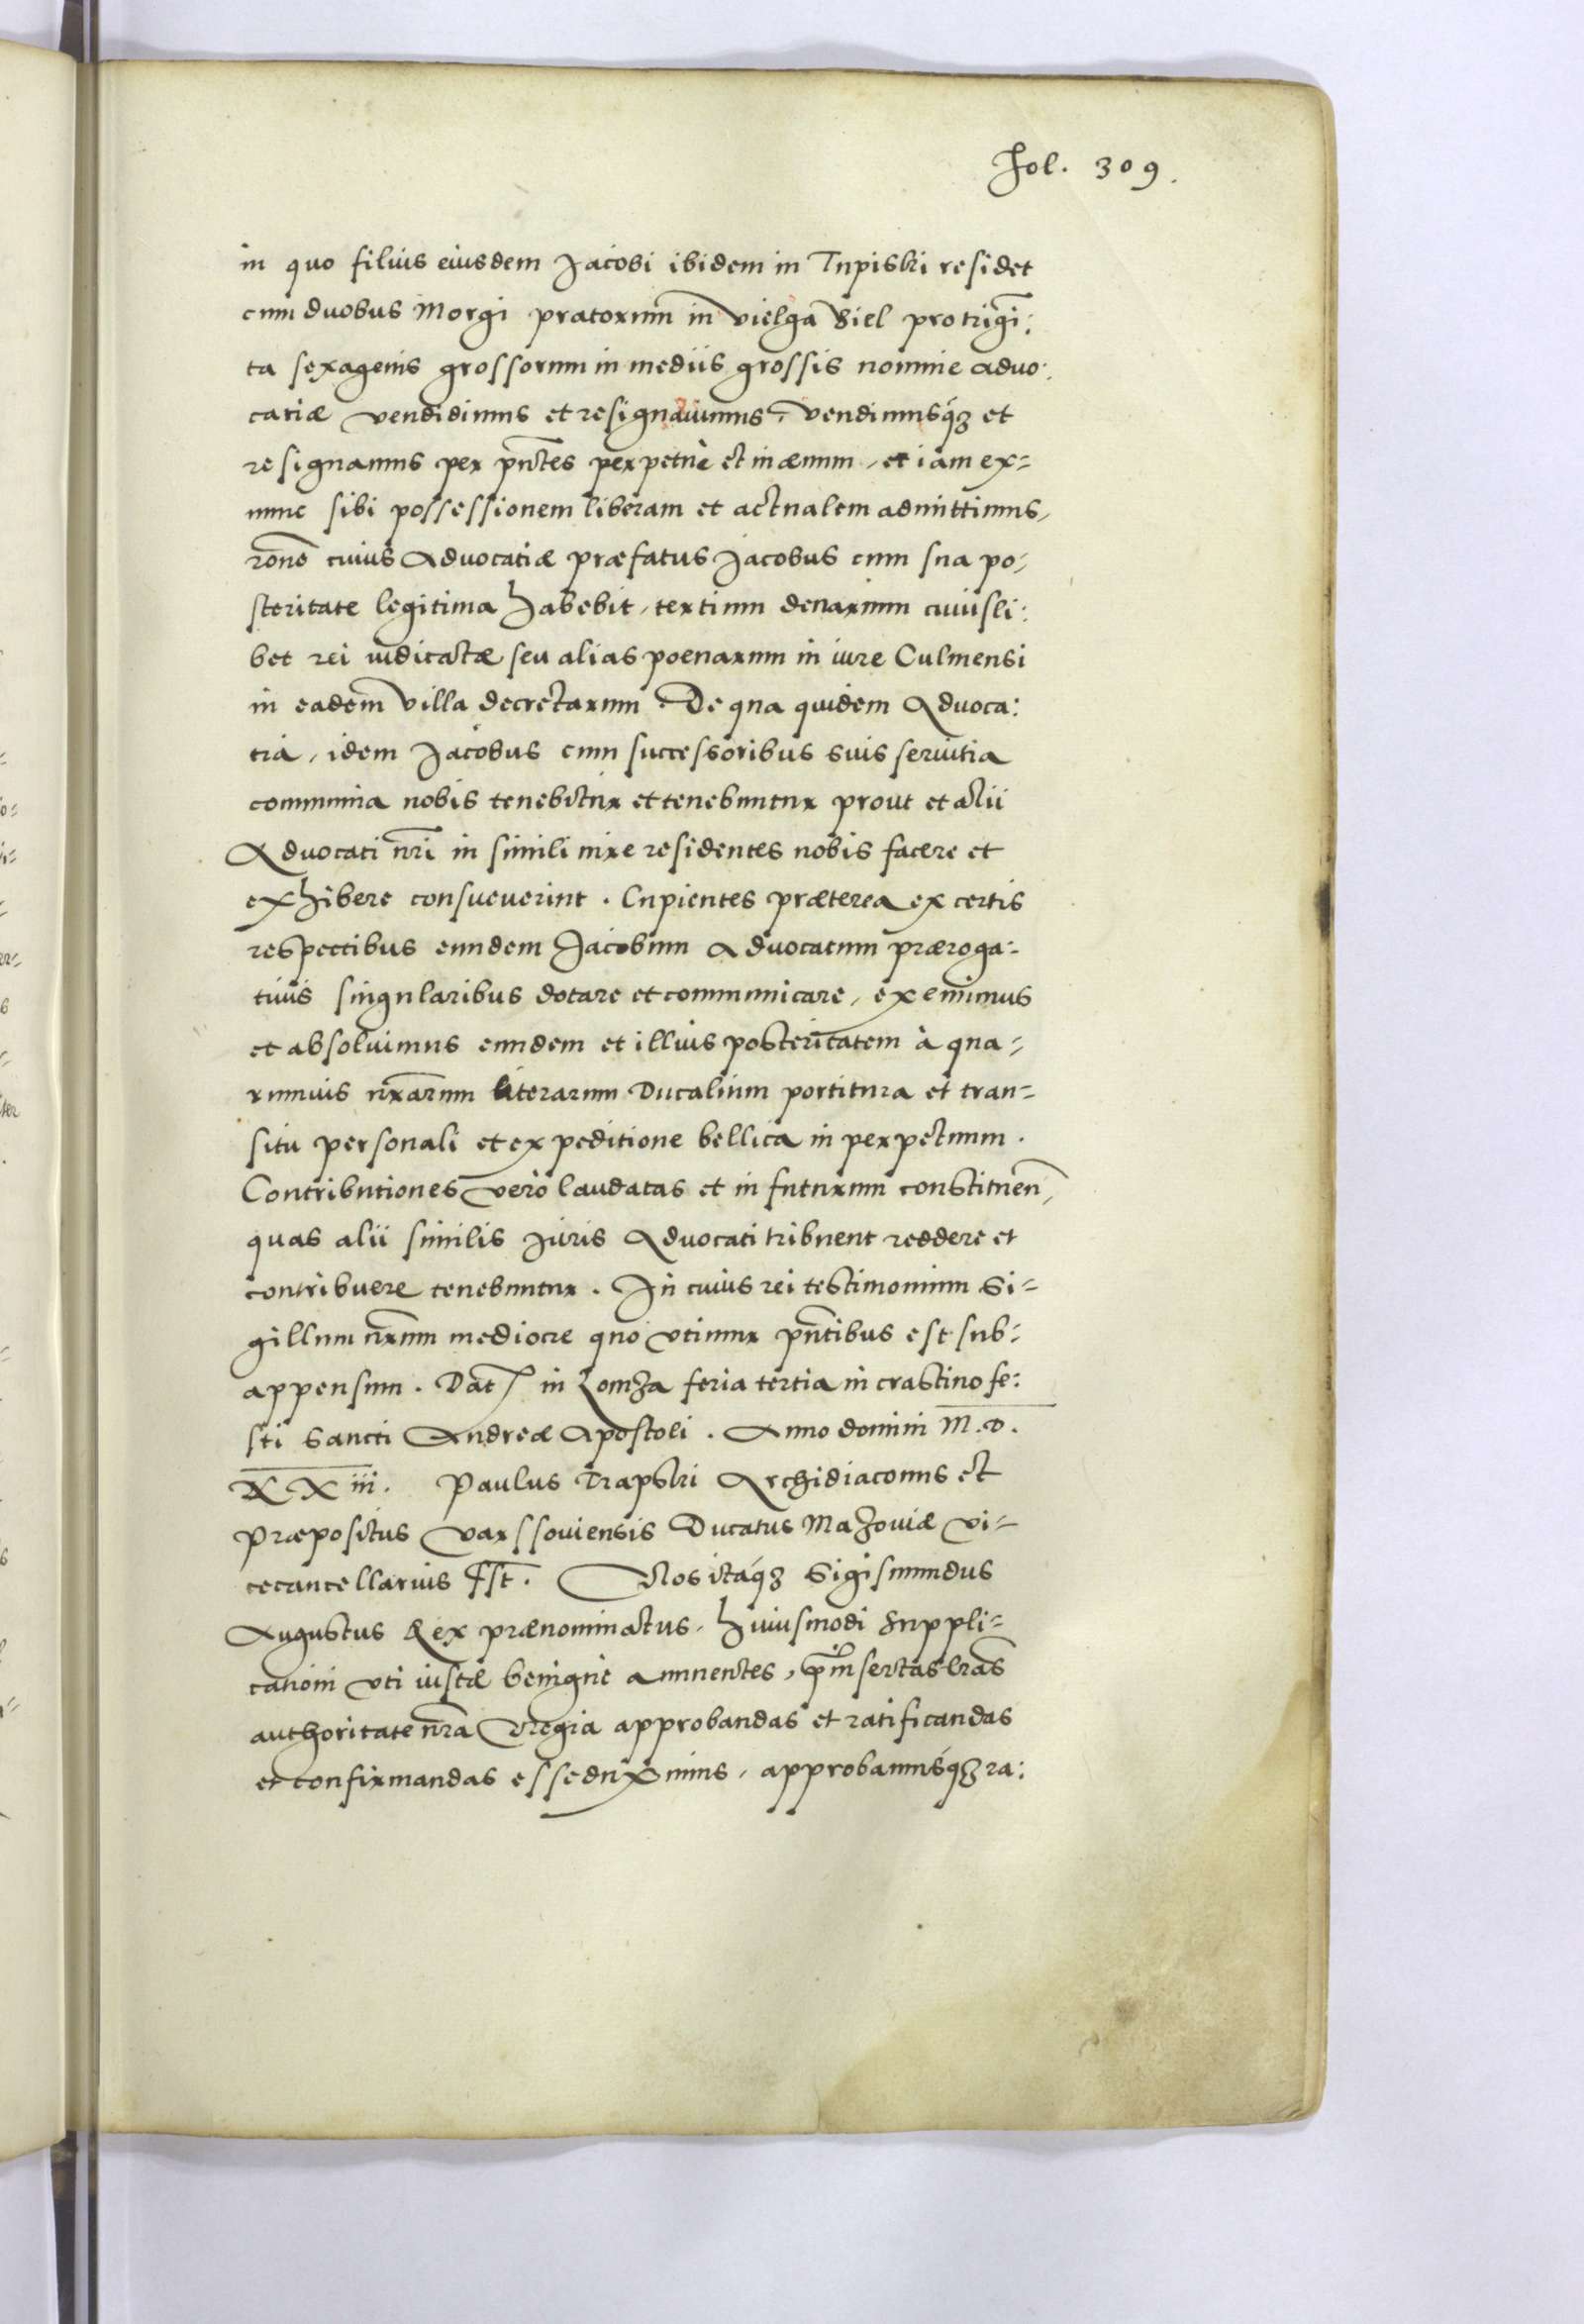 Fol. 309.
in quo filius eiusdem Jacobi ibidem in Tupiski residet
cum duobus Morgi pratorum in Vielga Biel pro trigĩ:
ta sexagenis grossorum in mediis grossis nomine aduo:
catiæ vendidimus et resignauimus, vendimusq́ꝫ et
resignamus per pñtes perpetuè et in æuum, et iam ex=
nunc sibi possessionem liberam et actualem admittimus,
rõne cuius Aduocatiæ præfatus Jacobus cum sua po=
steritate legitima habebit, tertium denarium cuiusli:
bet rei iudicatæ seu alias poenarum in iure Culmensi
in eadem villa decretarum. De qua quidem Aduoca:
tia, idem Jacobus cum successoribus suis seruitia
communia nobis tenebitur et tenebuntur prout et alii
Aduocati nr̃i in simili iure residentes nobis facere et
exhibere consueuerint. Cupientes præterea ex certis
respectibus eundem Jacobum Aduocatum præroga=
tiuis singularibus dotare et communicare, eximimus
et absoluimus eundem et illius posteritatem à qua=
rumuis nr̃arum literarum Ducalium portitura et tran=
situ personali et expeditione bellica in perpetuum.
Contributiones verò laudatas et in futurum constituen̄,
quas alii similis iuris Aduocati tribuent reddere et
contribuere tenebuntur. In cuius rei testimonium Si=
gillum nr̃um mediocre quo vtimur pñtibus est sub=
appensum. Dat̃ in Lomza feria tertia in crastino fe:
sti Sancti Andreæ Apostoli. Anno domini M.D.
XX iii. Paulus Trapski Archidiaconus et
Præpositus Varssouiensis Ducatus Mazouiæ vi=
cecancellarius sst. Nos itaq́ꝫ Sigismundus
Augustus Rex prænominatus, huiusmodi suppli=
cationi vti iustæ benignè annuentes, p̃insertas lr̃as
authoritate nr̃a Regia approbandas et ratificandas
et confirmandas esse duximus, approbamusq́ꝫ ra: